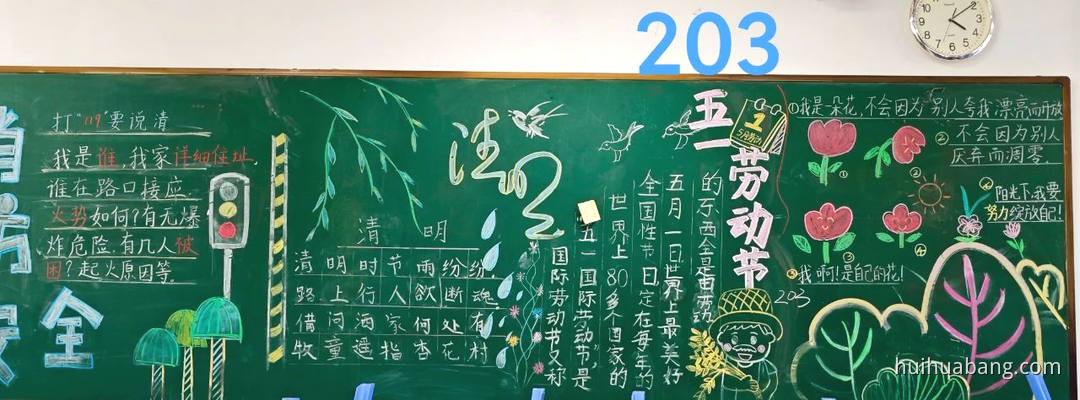 203
消防
安全
打"119"要说清
我是谁,我家详细住址,
谁在路口接应.
火势如何?有无爆
炸危险.有几人被
困?起火原因等.
清明
清 明
清明时节雨纷纷
路上行人欲断魂
借问酒家何处有
牧童遥指杏花村
五一
劳动节
1
的东西会是由劳动
五月一日世界上最美好
全国性节日.定在每年的
世界上80多个国家的
五一国际劳动节,是
国际劳动节又称
203
①我是一朵花,不会因为别人夸我漂亮而开放
②不会因为别人
厌弃而凋零.
①
②
③
④
④阳光下,我要
努力绽放自己!
③我啊!是自己的花!
huihuabang.com